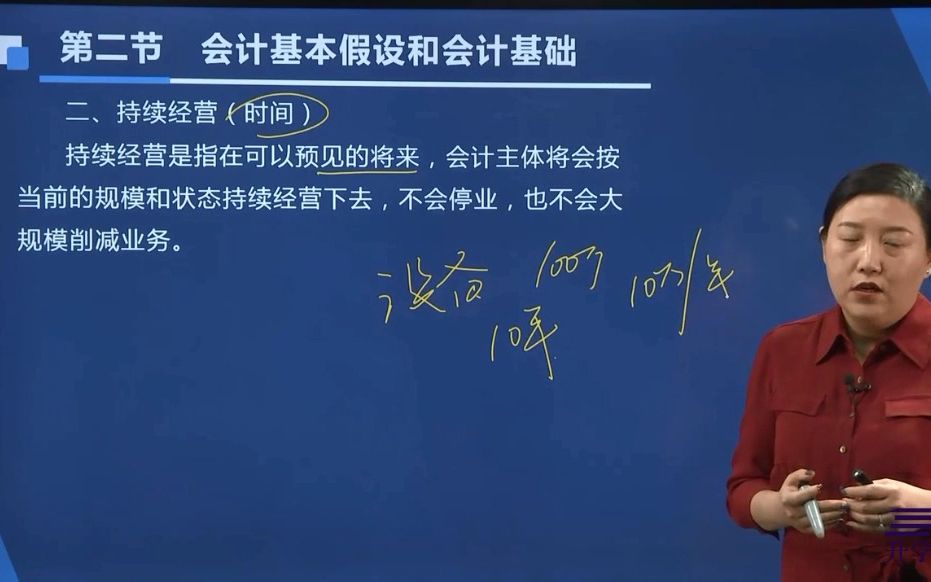 第二节 会计基本假设和会计基础
二、持续经营（时间）
持续经营是指在可以预见的将来，会计主体将会按
当前的规模和状态持续经营下去，不会停业，也不会大
规模削减业务。
设备 100万 10万/年
10年